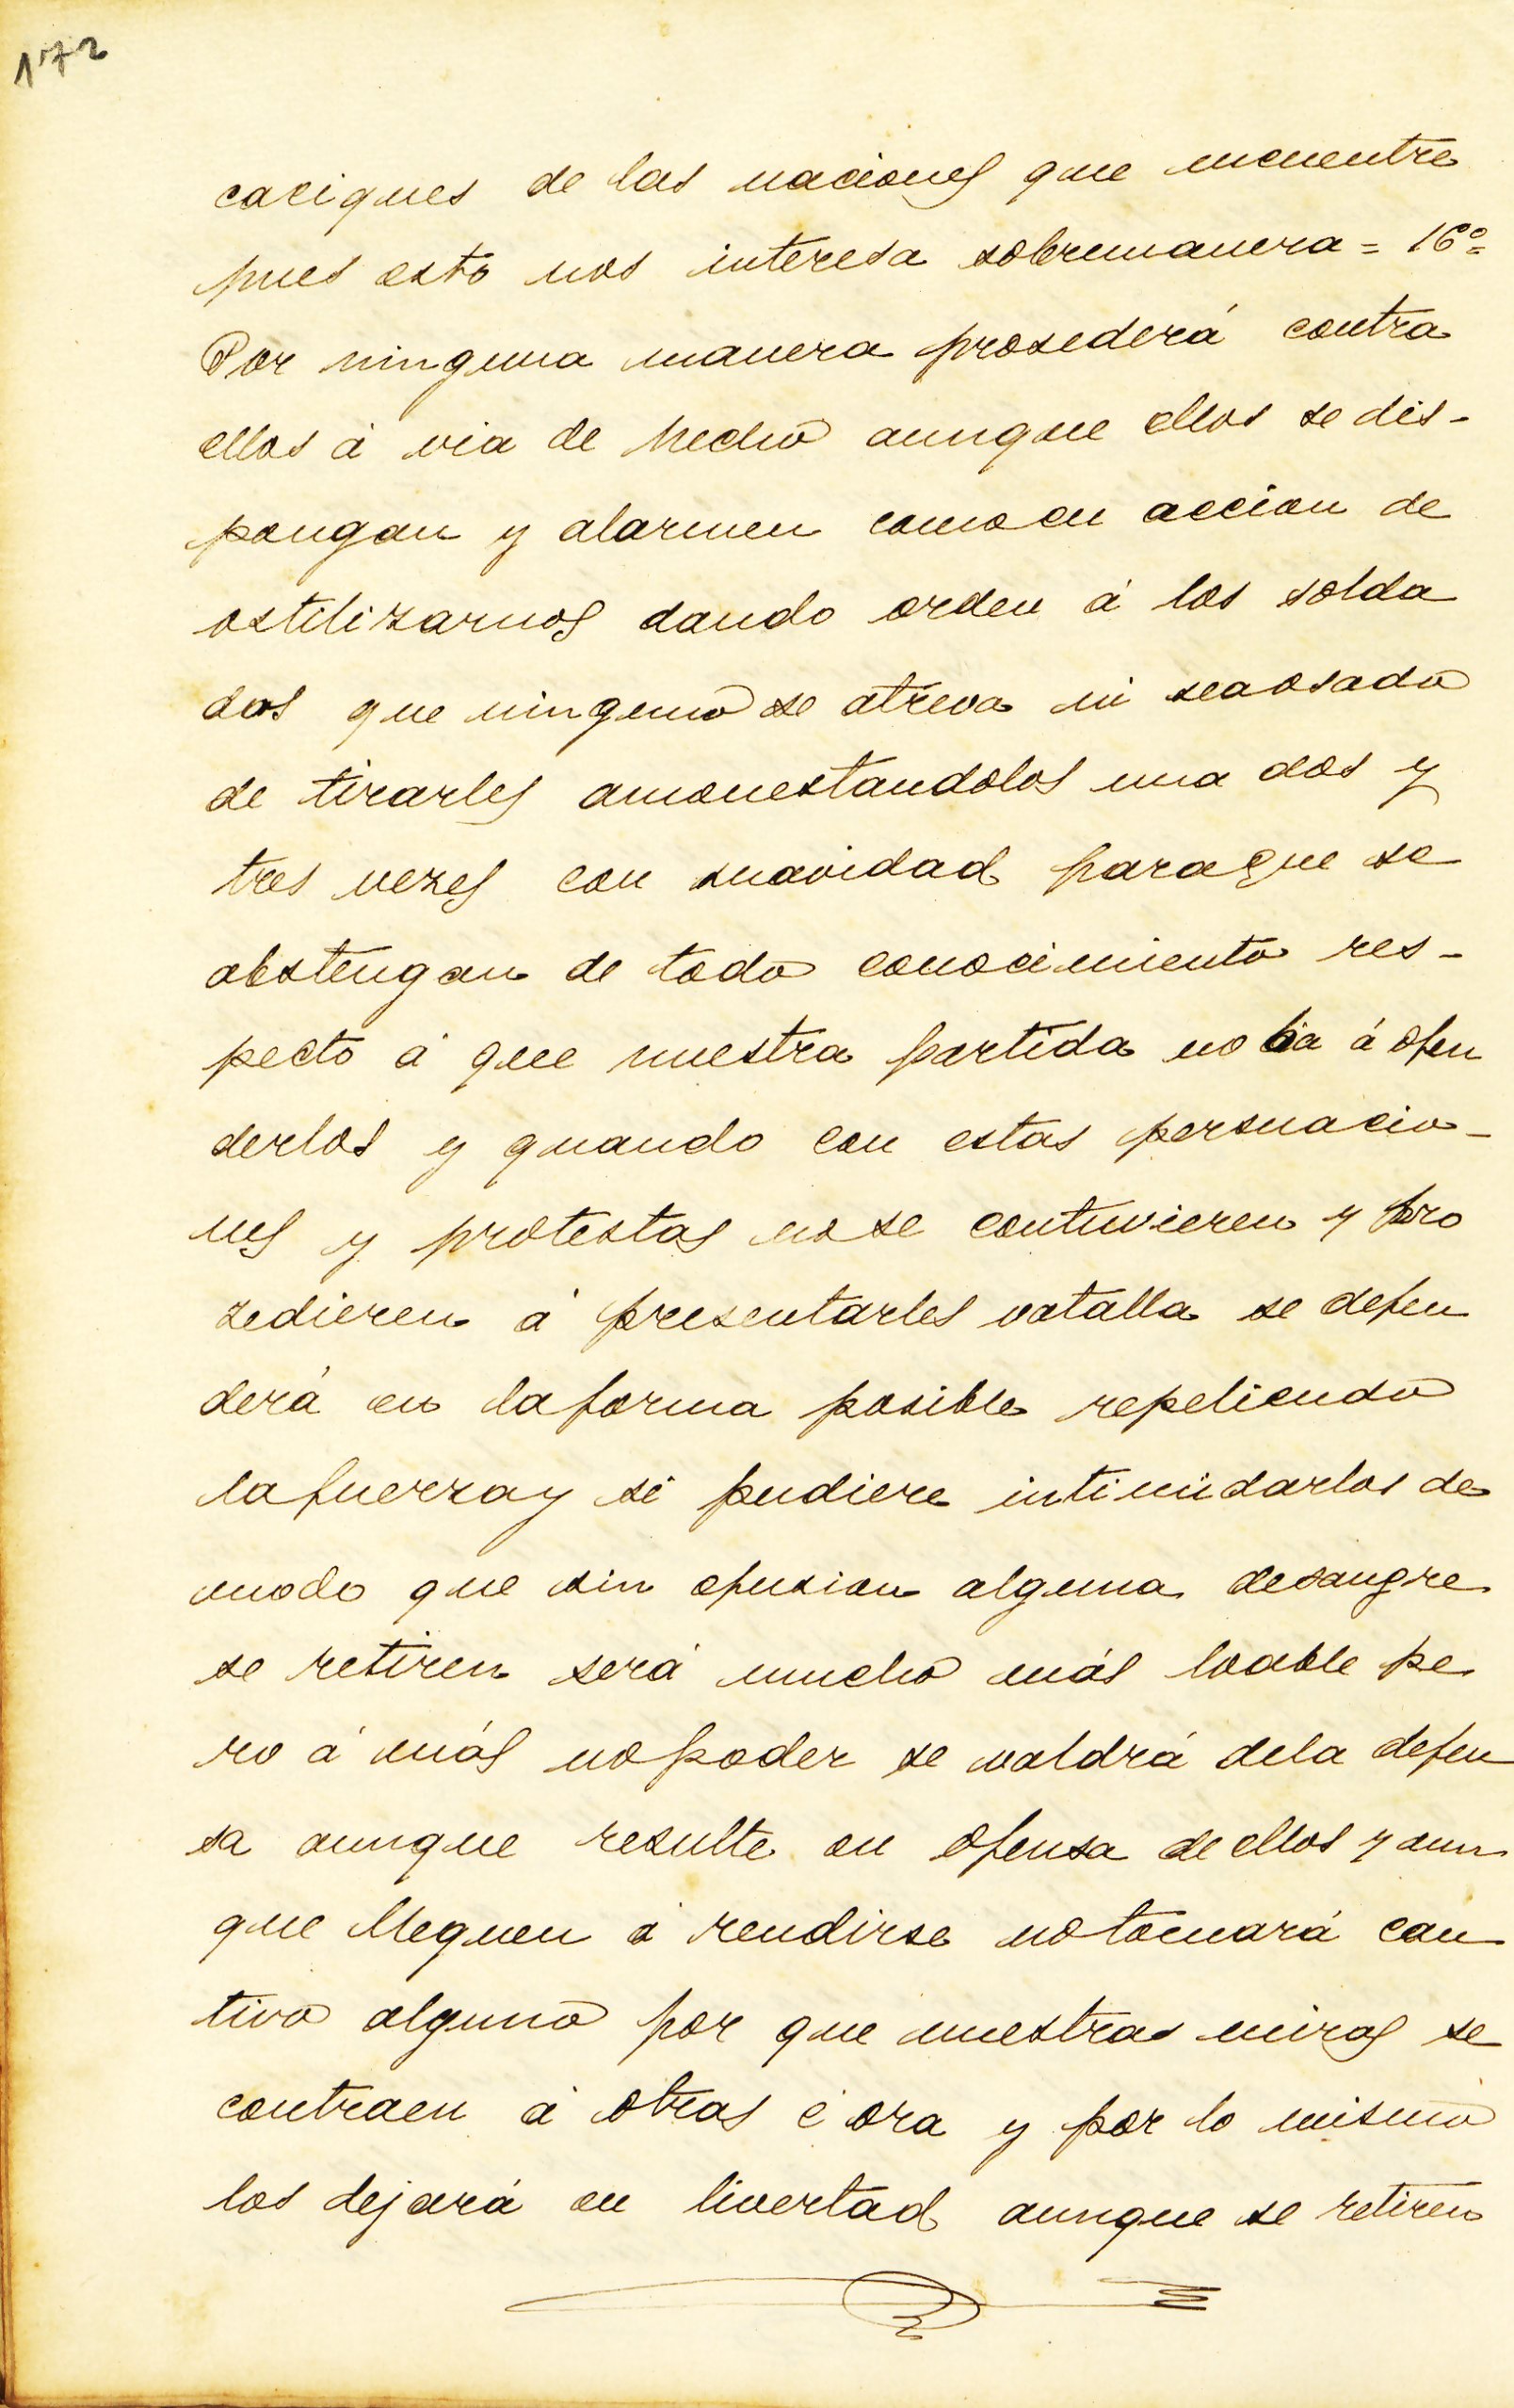 172
caciques de las naciones que encuentre
pues esto nos interesa sobremanera = 16º=
Por ninguna manera prosederá contra
ellos á via de hecho aunque ellos se dis-
pongan y alarmen como en accion de
ostilizarnos dando orden á los solda
dos que ninguno se atreva ni sea osado
de tirarles amonestandolos una dos y
tres vezes con suavidad paraque se
abstengan de todo conocimiento res-
pecto á que nuestra partida no bá á ofen
derlos y quando con estas persuacio-
nes y protestas no se contuvieren y pro
zedieren á presentarles vatalla se defen
derá en la forma posible repeliendo
la fuerza y si pudiere intimidarlos de
modo que sin efusion alguna de sangre
se retiren será mucho más loable pe
ro á más no poder se valdrá dela defen
sa aunque resulte en ofensa de ellos y aun
que lleguen á rendirse no tomará cau
tivo alguno por que nuestras miras se
contraen á otras é ora y por lo mismo
los dejará en livertad aunque se retiren